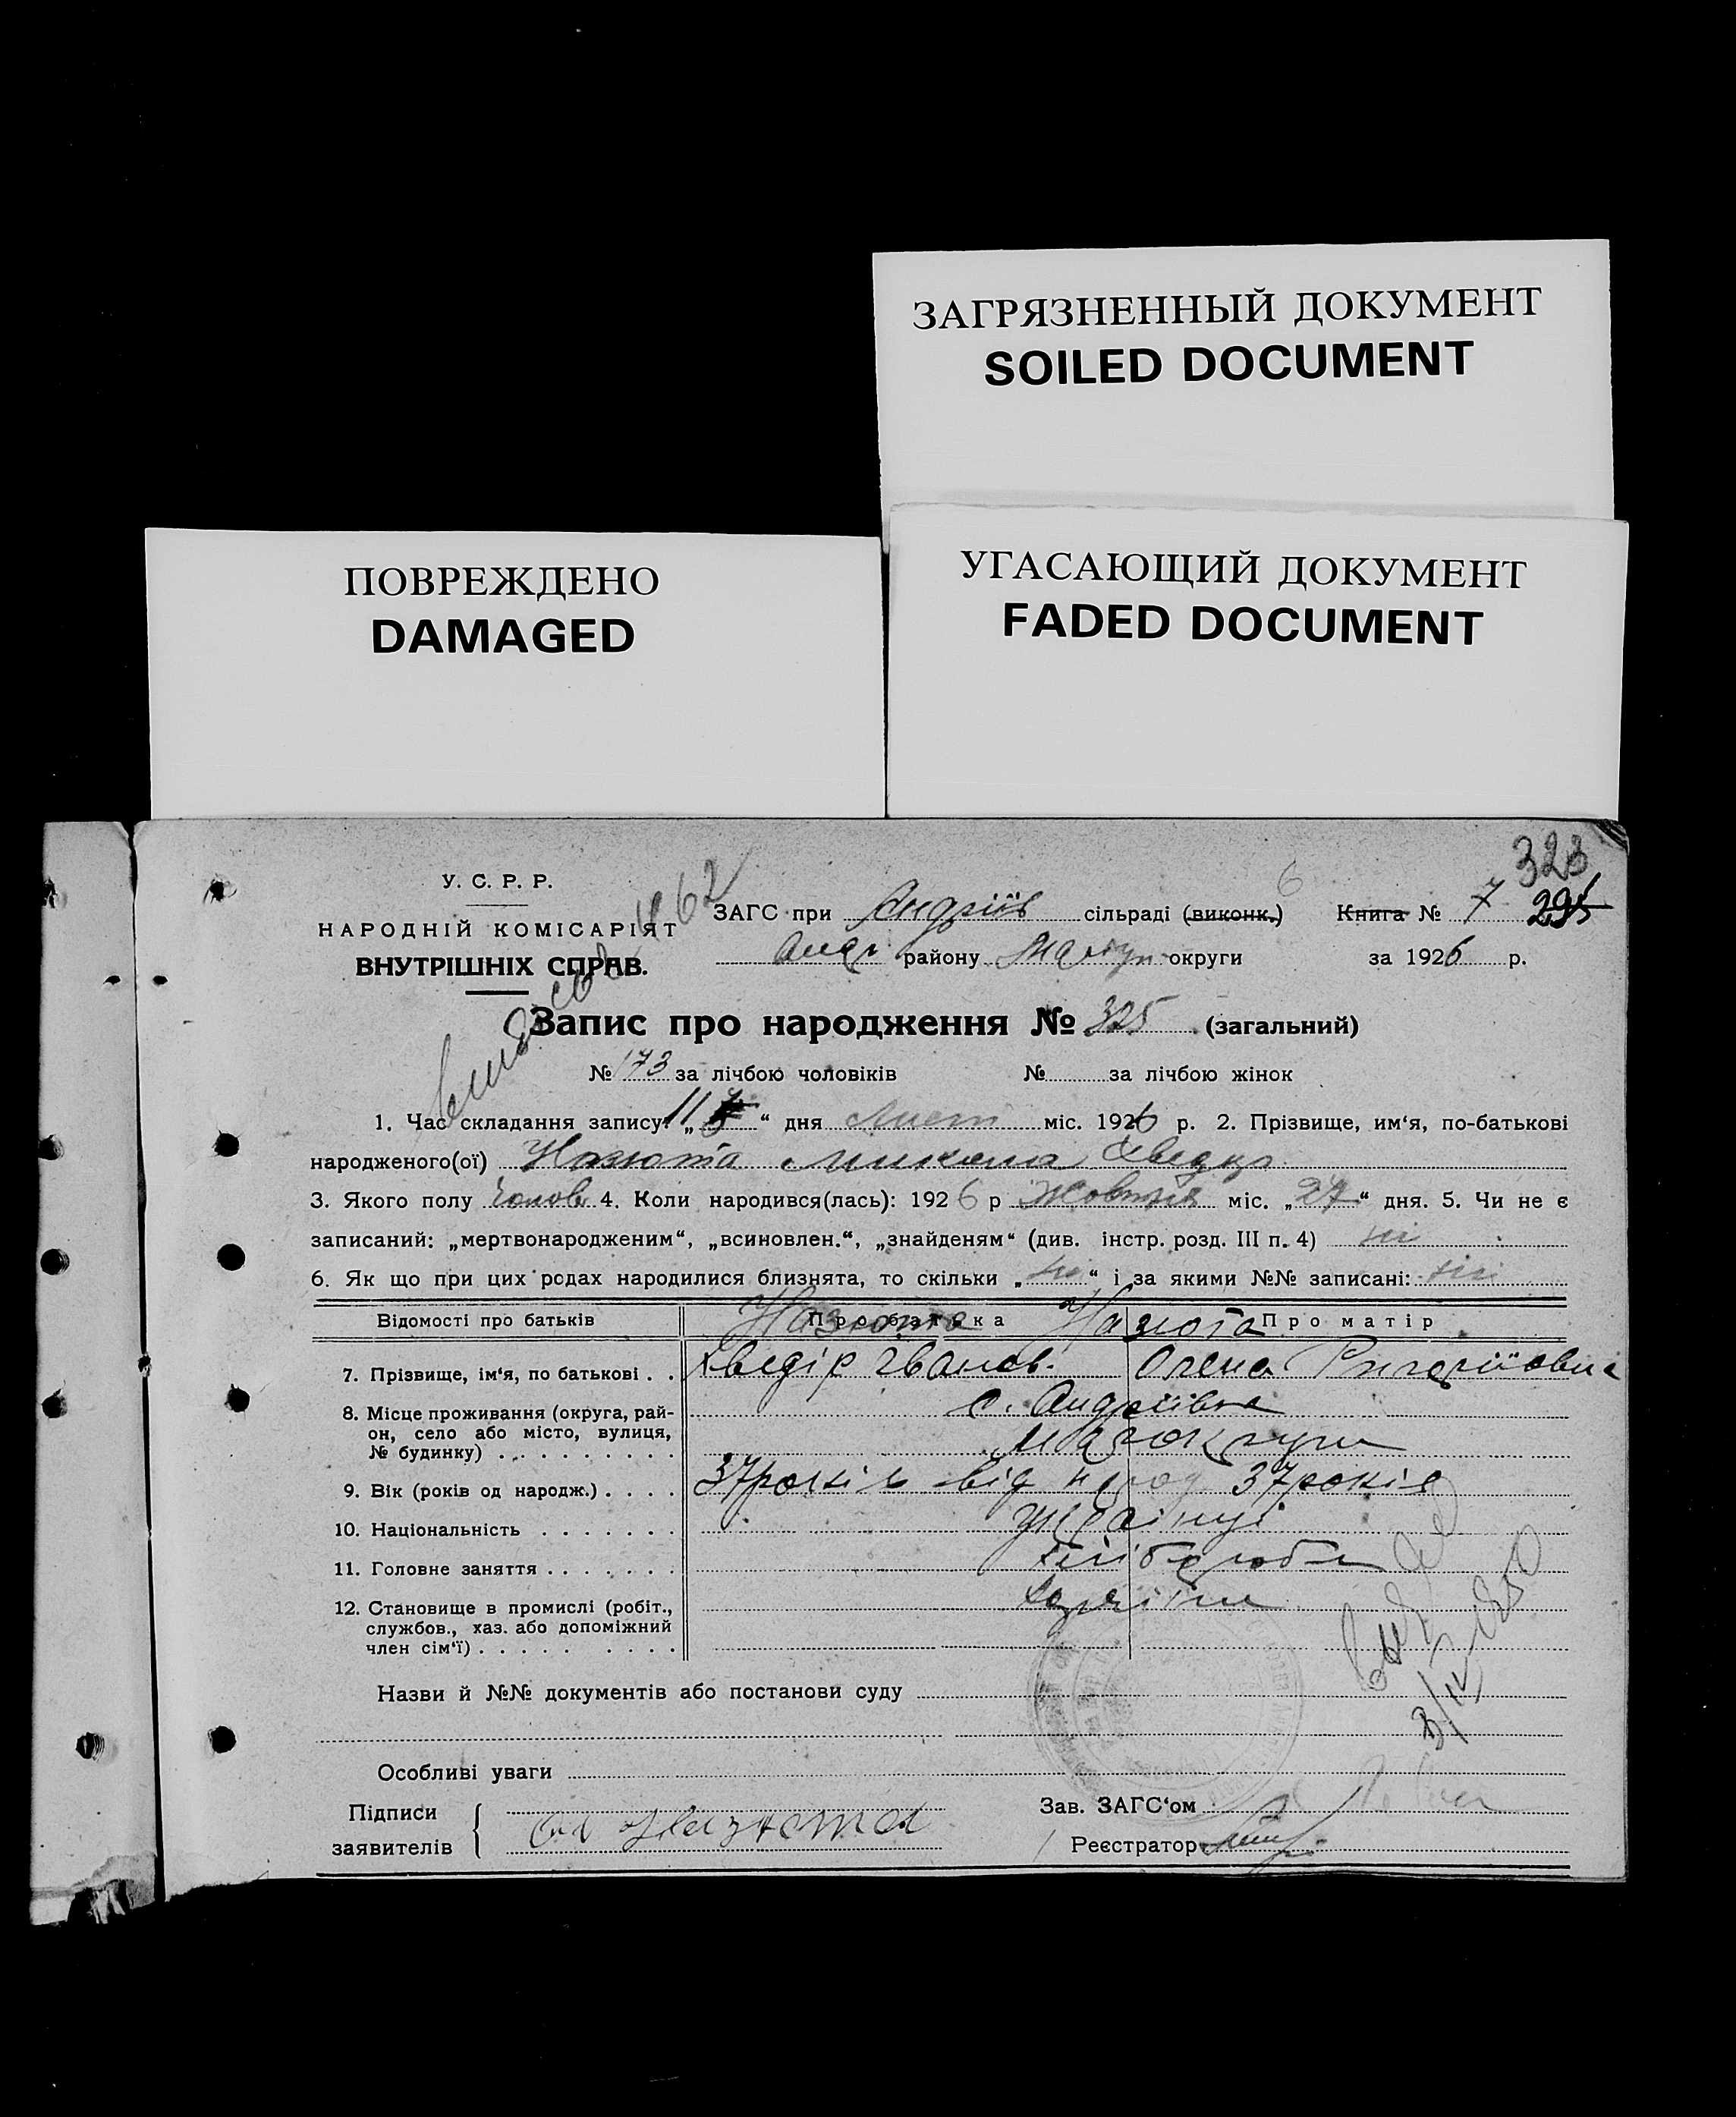 ЗАГРЯЗНЕННЫЙ ДОКУМЕНТ
SOILED DOCUMENT
ПОВРЕЖДЕНО
DAMAGED
УГАСАЮЩИЙ ДОКУМЕНТ
FADED DOCUMENT
323
У. С. Р. Р.
НАРОДНІЙ КОМІСАРІЯТ
ВНУТРІШНІХ СПРАВ.
6
ЗАГС при Андріїв сільраді (виконк.) Книга № 7 295
Андр району Маріуп округи за 1926 р.
Запис про народження № 325 (загальний)
№ 173 за лічбою чоловіків № за лічбою жінок
1. Час складання запису „11“ дня Лист міс. 1926 р. 2. Прізвище, им‘я, по-батькові
народженого(ої) Назюта Микола Хведір
3. Якого полу Чолов 4. Коли народився(лась): 1926 р Жовтня міс. „27“ дня. 5. Чи не є
записаний: „мертвонародженим“, „всиновлен.“, „знайденям“ (див. інстр. розд. III п. 4) ні
6. Як що при цих родах народилися близнята, то скільки „ні“ і за якими №№ записані: ні
Відомості про батьків Про батька Про матір
Назюта Назюта
7. Прізвище, ім‘я, по батькові . . Хведір Іванов. Олена Григоріївна
8. Місце проживання (округа, рай-
он, село або місто, вулиця,
№ будинку) . . . . . . . . . .
с. Андріївка
9. Вік (років од народж.) . . . . 37 років від народ 37 років
10. Національність . . . . . . . українці
11. Головне заняття . . . . . . . хлібороби
12. Становище в промислі (робіт.,
службов., хаз. або допоміжний
член сім‘ї) . . . . . . . . .
Назви й №№ документів або постанови суду
Особливі уваги
Підписи
заявителів
Назюта
Зав. ЗАГС‘ом
Реєстратор